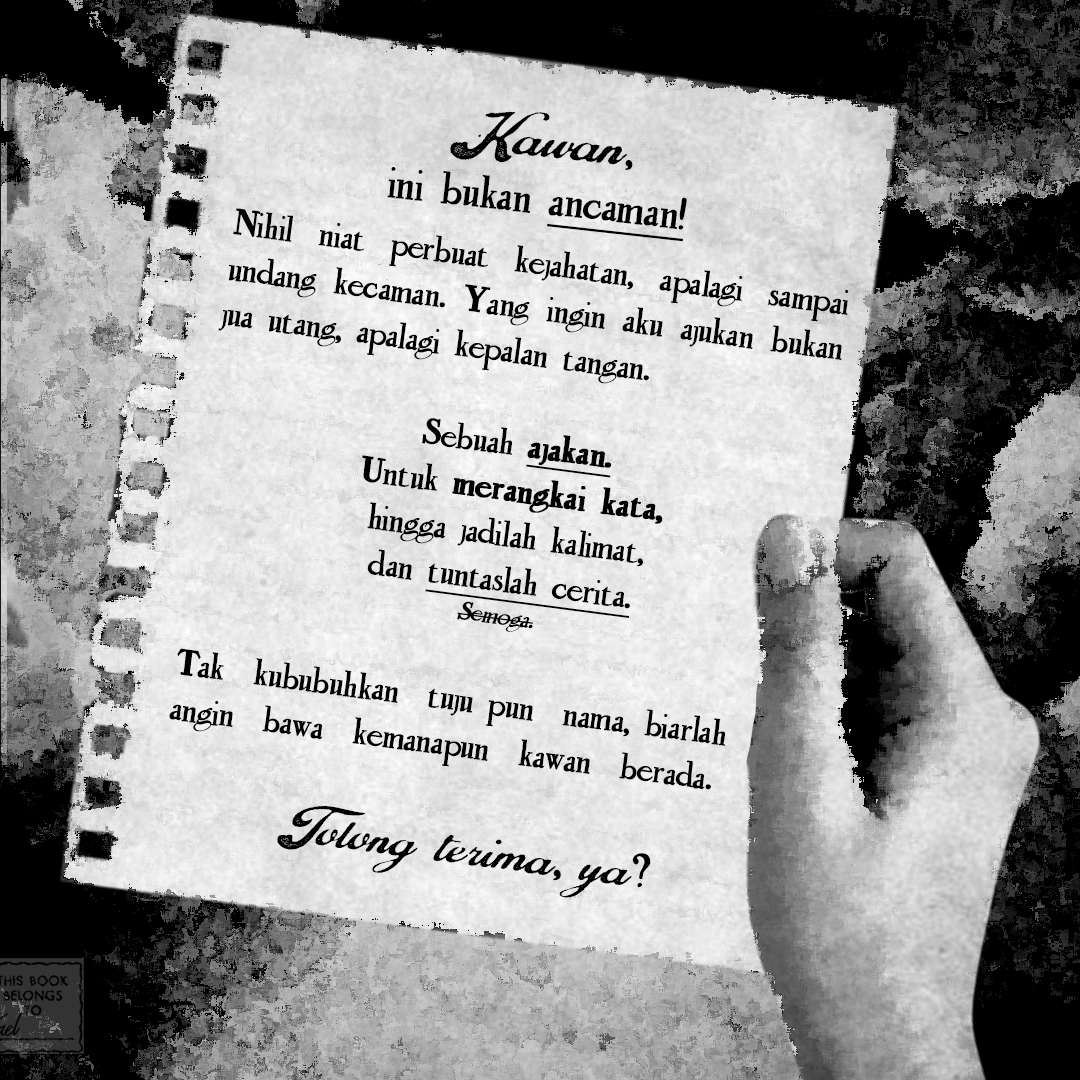 Kawan,
ini bukan ancaman!
Nihil niat perbuat kejahatan, apalagi sampai
undang kecaman. Yang ingin aku ajukan bukan
jua utang, apalagi kepalan tangan.
Sebuah ajakan.
Untuk merangkai kata,
hingga jadilah kalimat,
dan tuntaslah cerita.
Semoga.
Tak kububuhkan tuju pun nama, biarlah
angin bawa kemanapun kawan berada.
Tolong terima, ya?
THIS BOOK
BELONGS
TO